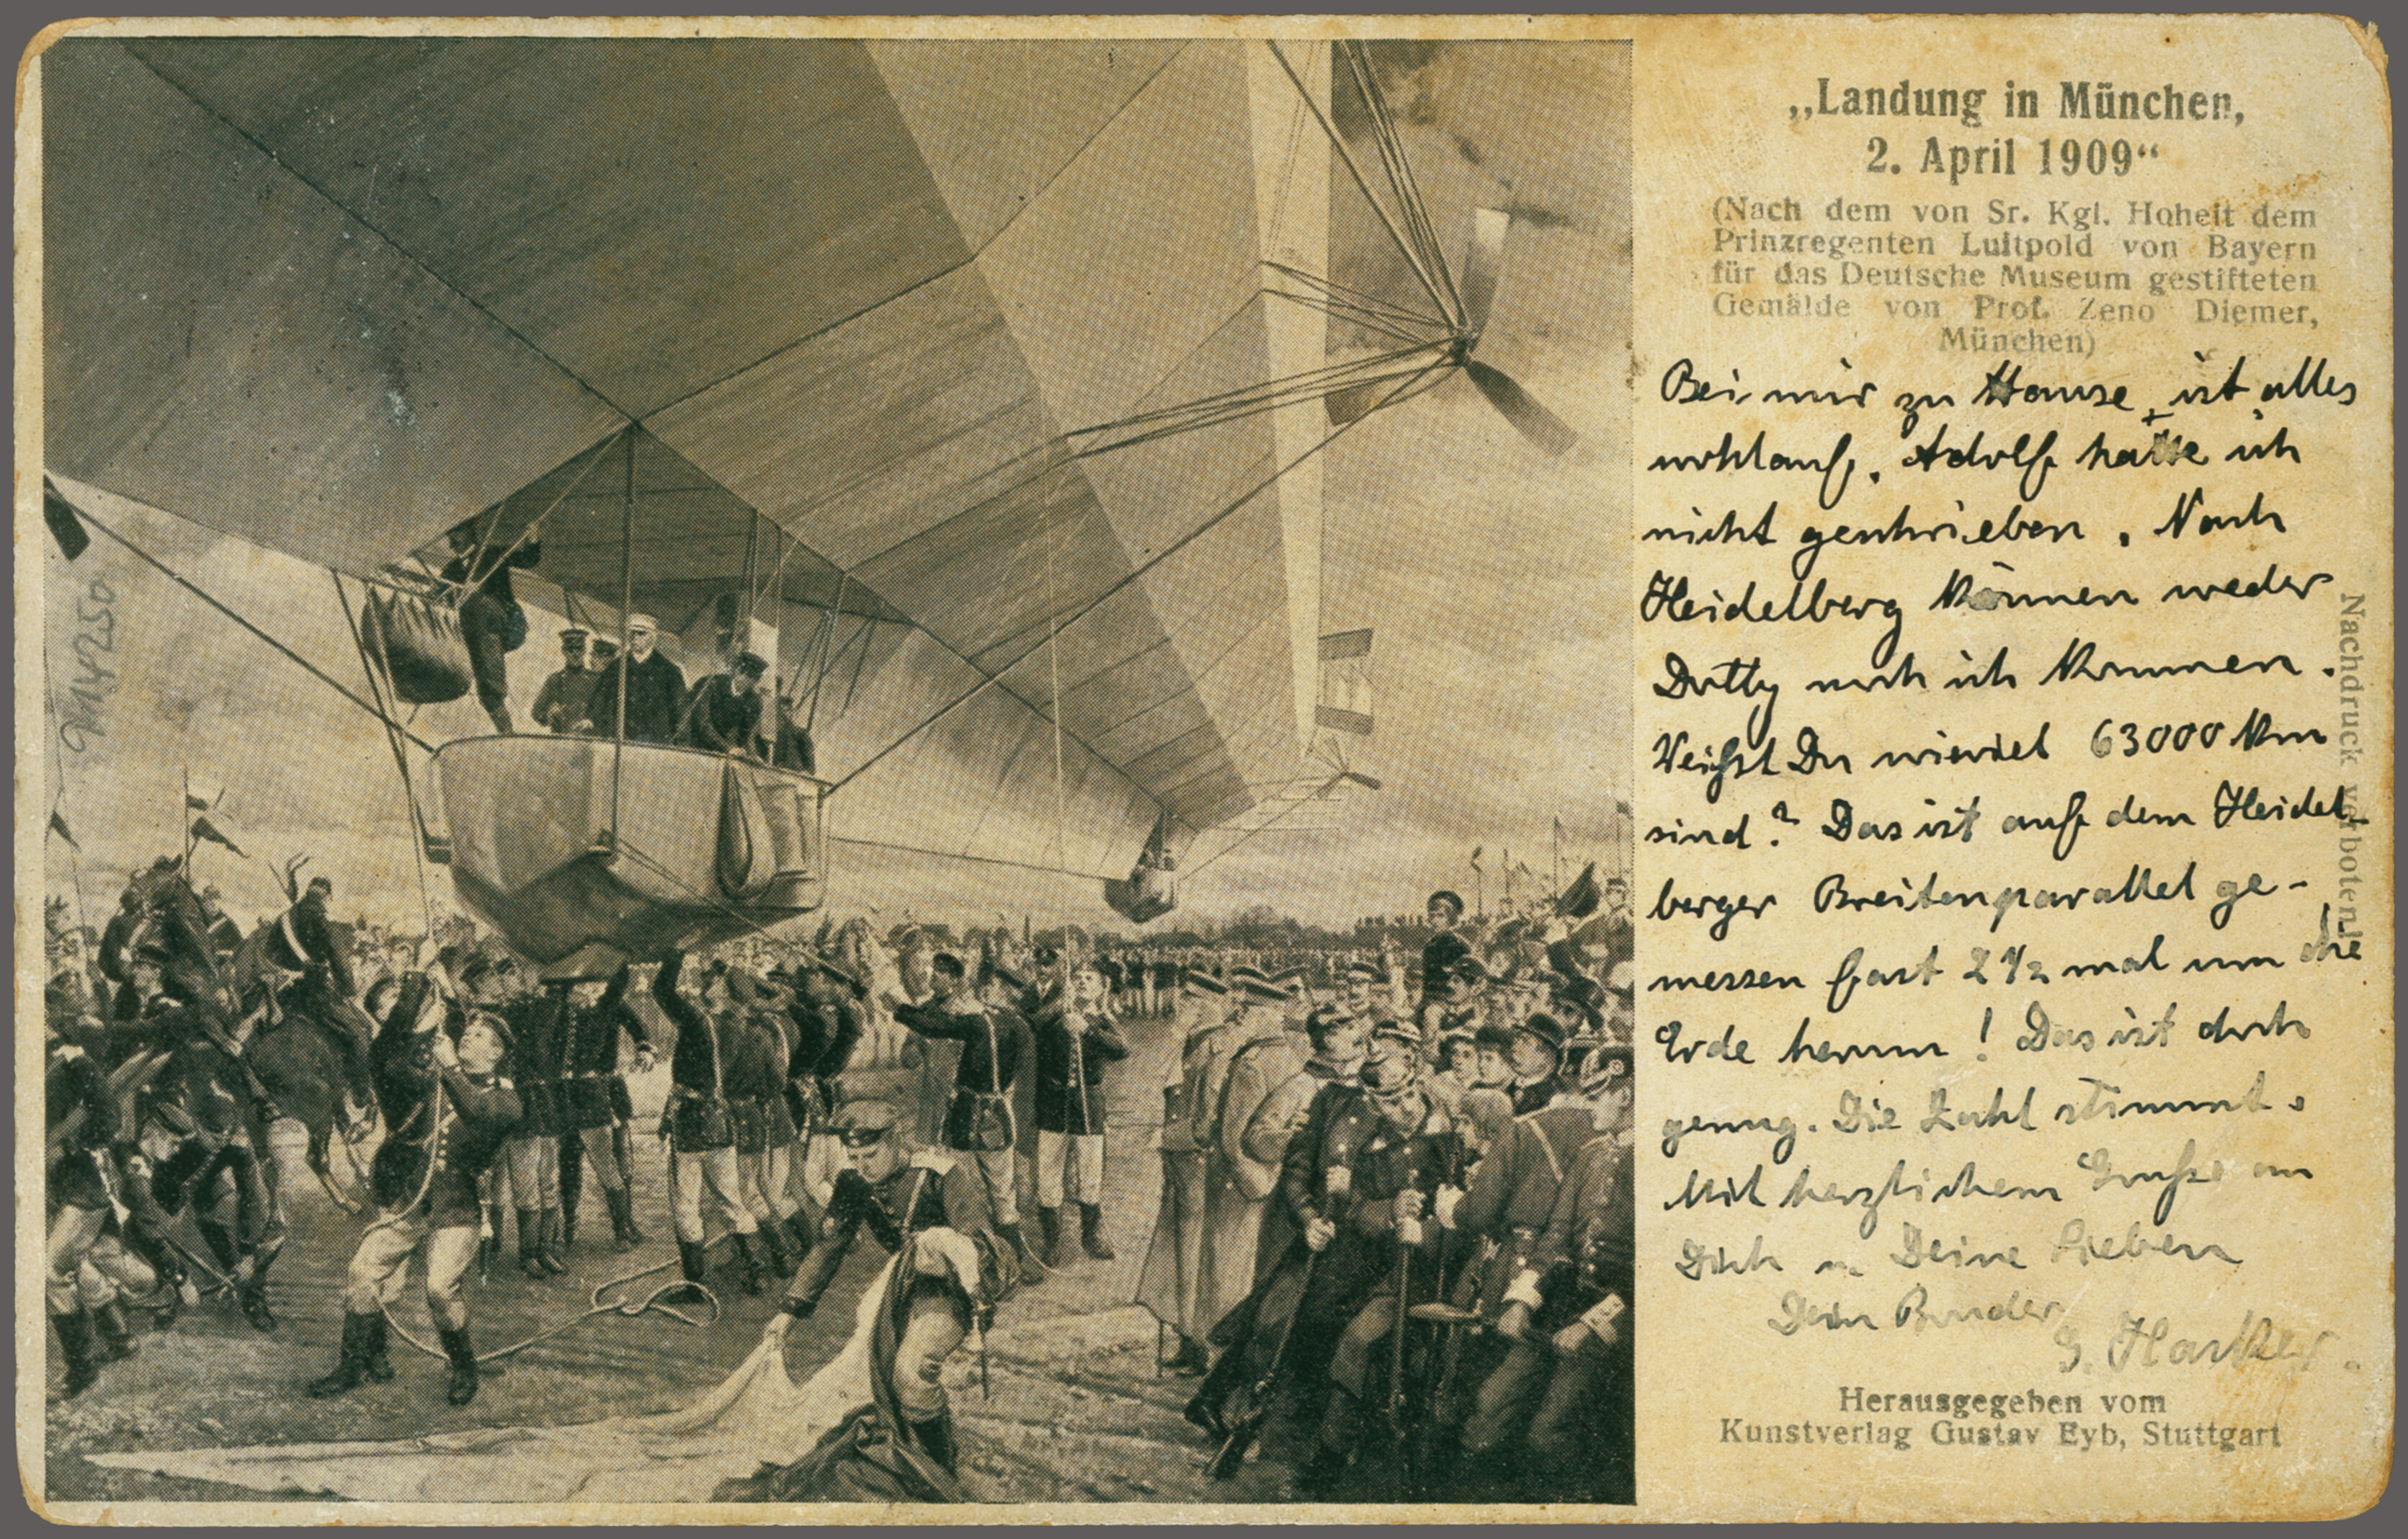 „Landung in München,
2. April 1909“
(Nach dem von Sr. Kgl. Hoheit dem
Prinzregenten Luitpold von Bayern
für das Deutsche Museum gestifteten
Gemälde von Prof. Zeno Diemer,
München)
Bei mir zu Hause ist alles
wohlauf. Adolf hatte ich
nicht geschrieben. Nach
Heidelberg können weder
Dotty noch ich kommen.
Weißt Du wieviel 63000 km
sind? Das ist auf dem Heidel-
berger Breitenparallel ge-
messen fast 2 1/2 mal um die
Erde herum! Das ist doch
genug. Die Zahl stimmt.
Mit herzlichem Gruße an
Dich u. Deine Lieben
Dein Bruder
G. Harker.
Herausgegeben vom
Kunstverlag Gustav Eyb, Stuttgart
Nachdruck verboten!
914250